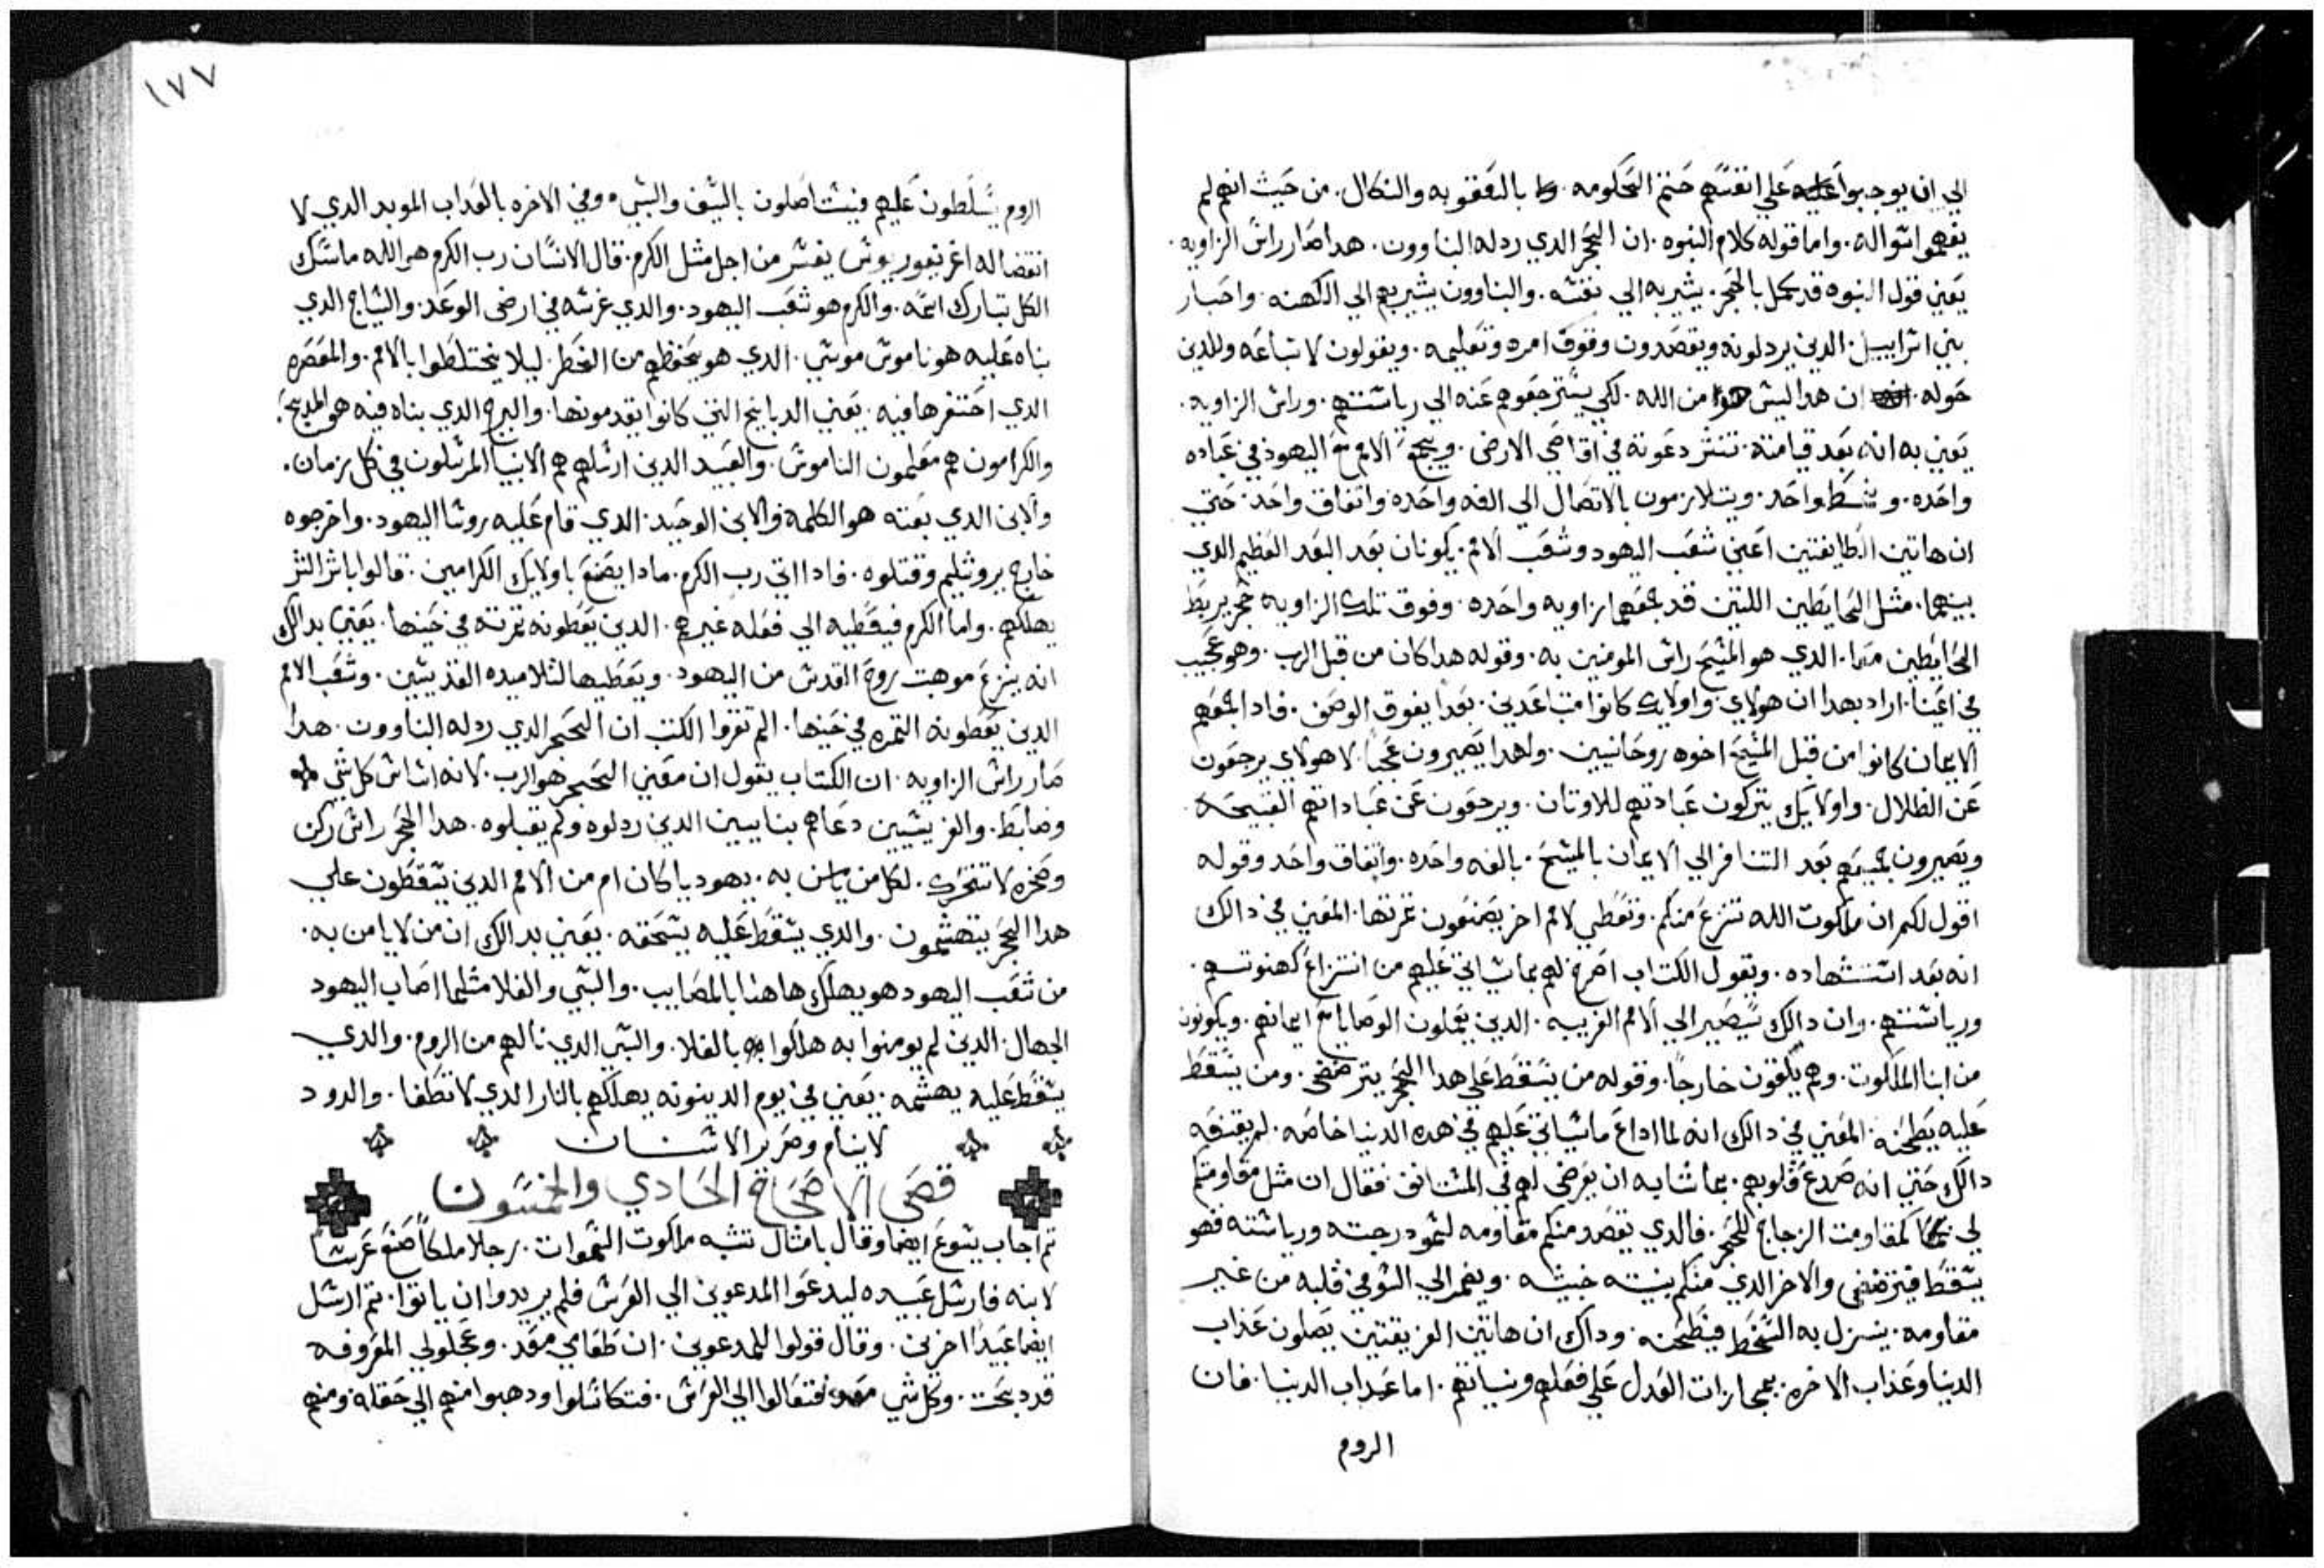 الي ان يوجبوا علي انفسهم حتم الحكومه بالعقوبه والنكال. من حيث انهم لم
يفهموا سواله. واما قوله كلام النبوه. ان الحجر الدي ردله البناوون. هدا صار راس الزاويه.
يعني قول النبوه قد كمل بالحجر. يشير به الي نفسه. والبناوون يشير بهم الي الكهنه. واحبار
بني اسراييل. الدين يردلونه ويقصدون وقوف امره وتعليمه. ويقولون لاتباعه وللدين
حوله. ان هدا ليس هوا من الله. لكي يسترجعوهم عنه الي رياستهم. وراس الزاويه.
يعني به انه بعد قيامته. تنتشر دعوته في اقاصي الارض. ويجمع الامم مع اليهود في عباده
واحده. و واحد. ويتلازمون بالاتصال الي الفه واحده واتفاق واحد. حتي
ان هاتين الطايفتين اعني شعب اليهود وشعب الامم. يكونان بعد البعد العظيم الدي
بينهما. مثل الحايطين اللتين قد جمعهما زاويه واحده. وفوق تلك الزاويه حجر يربط
الحايطين معا. الدي هو المسيح راس المومنين به. وقوله هدا كان من قبل الرب. وهو عجيب
في اعيننا. اراد بهدا ان هولاي واولايك كانوا متباعدين. بعدا يفوق الوصف. فادا جمعهم
الايمان كانوا من قبل المسيح اخوه روحانيين. ولهدا يصيرون عجبا. لا هولاي يرجعون
عن الظلال. واولايك يتركون عبادتهم للاوتان. ويرجعون عن عباداتهم القبيحه.
ويصيرون جميعهم بعد التنافر الي الايمان بالمسيح. بالفه واحده. واتفاق واحد وقوله
اقول لكم ان ملكوت الله تنزع منكم. وتعطي لامم اخر يصنعون تمرتها. المعني في دالك
انه بعد استشهاده. وبقول الكتاب اصرخ لهم بما سياتي عليهم من انتزاع كهنوتهم.
ورياستهم. وان دالك سيصير الي الامم الغريبه. الدين يعملون الوصايا مع ايمانهم. ويكونون
من ابنا الملكوت. وهم يلقون خارجا. وقوله من يسقط علي هدا الحجر يترضض. ومن يسقط
عليه يطحنه. المعني في دالك انه لما اداع ما سياتي عليهم في هده الدنيا خاصه. لم يقنعه
دالك حتي انه صدع قلوبهم. بما شابه ان يعرض لهم في المستانف. فقال ان مثل مقاومتكم
لي كمقاومت الزجاج للحجر. فالدي يقصد منكم مقاومه لسمو درجته ورياسته فهو
يسقط فيترضض والاخر الدي منكم بنيته خبيثه. ويضمر الي السو في قلبه من غير
مقاومه. ينزل به السخط فيطحنه. وداك ان هاتين الفريقتين يصلون عذاب
الدنيا وعذاب الاخره. بمجازات العدل علي فعلهم ونياتهم. اما عداب الدنيا. فان
الروم
١٧٧
الروم يسلطون عليهم فيستاصلون بالسيف والسبي. وفي الاخره بالعداب الموبد الدي لا
انقضا له اغريغوريوس يفسر من اجل مثل الكرم. قال الانسان رب الكرم هو الله ماسك
الكل تبارك اسمه. والكرم هو شعب اليهود. والدي غرسه في ارض الوعد. والسياج الدي
بناه عليه هو ناموس موسي. الدي هو يحفظهم من الخطر. ليلا يختلطوا بالامم. والمعصره
الدي احتفرها فيه. يعني الدبايح التي كانوا يقدمونها. والبرج الدي بناه فيه هو المدبح.
والكرامون هم معلمون الناموس. والعبيد الدين ارسلهم هم الانبيا المرسلون في كل زمان.
والابن الدي بعته هو الكلمه والابن الوحيد. الدي قام عليه روسا اليهود. واخرجوه
خارج يروشليم وقتلوه. فادا اتي رب الكرم. مادا يصنع باولايك الكرامين. قالوا باشر الشر
يهلكهم. واما الكرم فيعطيه الي فعله غيرهم. الدين يعطونه تمرته في حينها. يعني بدالك
انه ينزع موهبت روح القدس من اليهود. ويعطيها لتلاميده القديسين. وشعب الامم
الدين يعطونه التمره في حينها. الم تقروا الكتب ان الحجر الدي ردله البناوون. هدا
صار راس الزاويه. ان الكتاب يقول ان معني الحجر هو الرب. لانه اساس كل شي
وضابط. والفريسيين دعاهم بنايين الدين ردلوه ولم يقبلوه. هدا الحجر راس ركن
وصخره لا تتحرك. لكل من يامن به. يهوديا كان ام من الامم الدين يسقطون علي
هدا الحجر يتهشمون. والدي يسقط عليه يسحقه. يعني بدالك ان من لا يامن به.
من شعب اليهود هو يهلك هاهنا بالمصايب. والسبي والغلا مثلما اصاب اليهود
الجهال. الدين لم يومنوا به هلكوا بالغلا. والسبي الدي نالهم من الروم. والدي
يسقط عليه يهشمه. يعني في يوم الدينونه يهلكهم بالنار الدي لا تطفا. والدود
لا ينام وصرير الاسنان
فصحي الاصحاح الحادي والخمسون
تم اجاب يسوع ايضا وقال بامثال تشبه ملكوت السموات. رجلا ملكا صنع عرسا
لابنه فارسل عبيده ليدعوا المدعوين الي العرس فلم يريدوا ان ياتوا. تم ارسل
ايضا عبيدا اخرين. وقال قولوا للمدعوين. ان طعامي معد. وعجولي المعلوفه
قد دبحت. وكل شي معد فتعالوا الي العرس. فتكاسلوا ودهبوا منهم الي حقله ومنهم